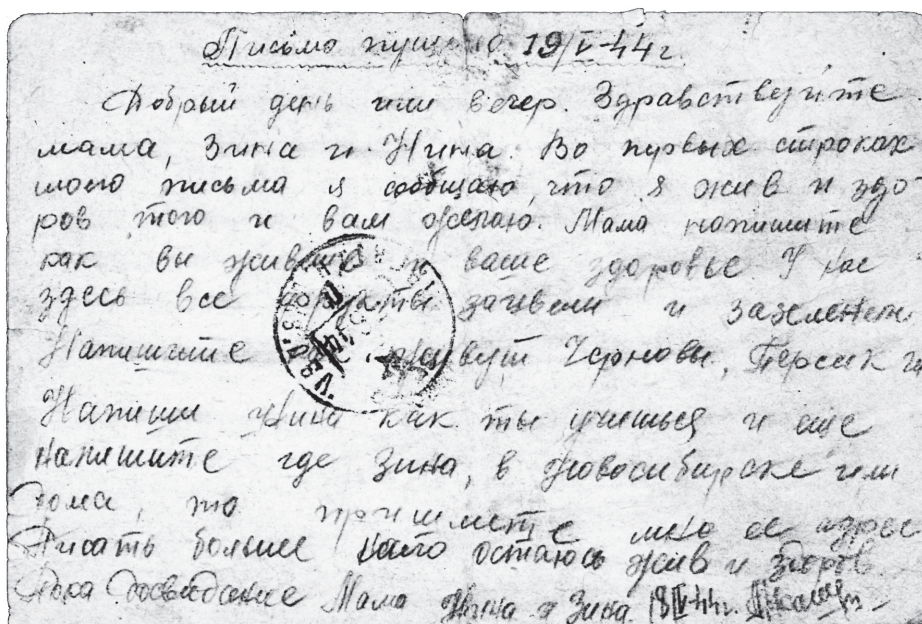 Письмо пущено 19/IV-44г.
Добрый день или вечер. Здравствуйте
мама, Зина и Нина. Во первых строках
моего письма я сообщаю, что я жив и здо
ров того и вам желаю. Мама напишите
как вы живете и ваше здоровье У нас
здесь все фрукты зацвели и зазеленели
Напишите как живут Черновы, Персик и
Напиши Нина как ты учишься и еще
напишите где Зина, в Новосибирске или
дома, то пришлете мне ее адрес
Писать больше нечего остаюсь жив и здоров
Пока досвидание Мама Нина и Зина 18/IV-44г.